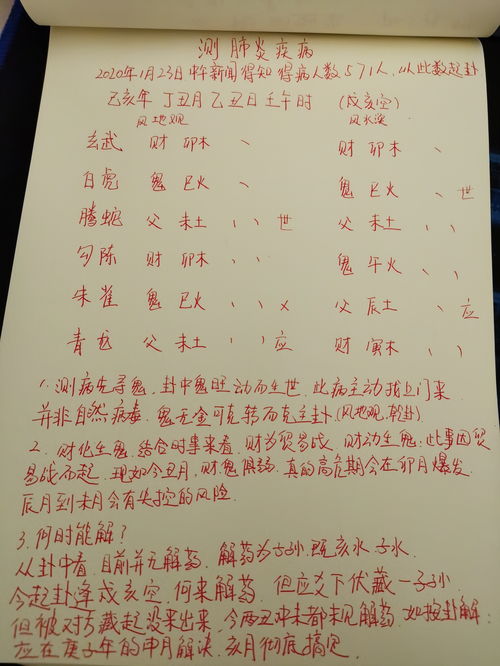 测肺炎疾病
2020年1月23日中午新闻得知 得病人数571人,以此数起卦
己亥年 丁丑月 乙丑日 壬午时 (戌亥空)
风地观 风水涣
玄武 财 卯木 、 财 卯木 、
白虎 鬼 巳火 、 鬼 巳火 、 世
腾蛇 父 未土 、、 世 父 未土 、、
勾陈 财 卯木 、、 鬼 午火 、、
朱雀 鬼 巳火 、、 X 父 辰土 、 应
青龙 父 未土 、、 应 财 寅木 、、
1、测病先寻鬼,卦中鬼旺动而生世,此病主动找上门来
并非自然病毒,鬼无金可克转而克主卦(风地观,乾卦)
2、财化生鬼,结合时事来看,财为贸易战,财动生鬼:此事因贸
易战而起,现如今丑月,财鬼俱弱,真的高危期会在卯月爆发,
辰月到未月会有失控的风险
3、何时能解?
从卦中看,目前并无解药,解药为子孙,既亥水、子水,
今起卦逢戌亥空,何来解药,但应爻下伏藏一子孙
但被对方藏起没来出来,今两丑冲未都未见解药,如按卦解:
应在庚子年的申月解决,亥月彻底搞定